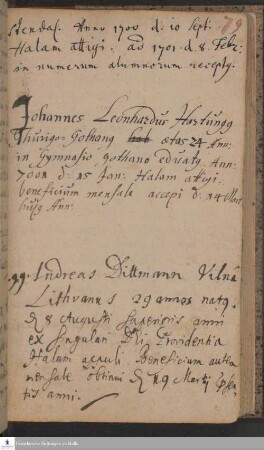 79
stendal. Anno 1700 d. 10 Sept.
Halam attigi. ad 1701 d. 8. Febr.
in numerum alumnorum recept9.
Johannes Leonhardus Hertung
Thuringo-Gothang aetas 24 Ann.
in Gymnasio Gothano educat9 Ann.
d. 15 Jan. Halam attigi.
beneficium mensale accepi d. 14 Mart.
huj9 Ann.
99. Andreas Dittmann Vilna
Lithvanus 29 annos nat9
d. 8 Augusti superioris anni
ex singulari Dei Providentia
Halam appuli. Beneficium autem
mensale obtinui d. 19 Martij
anni.